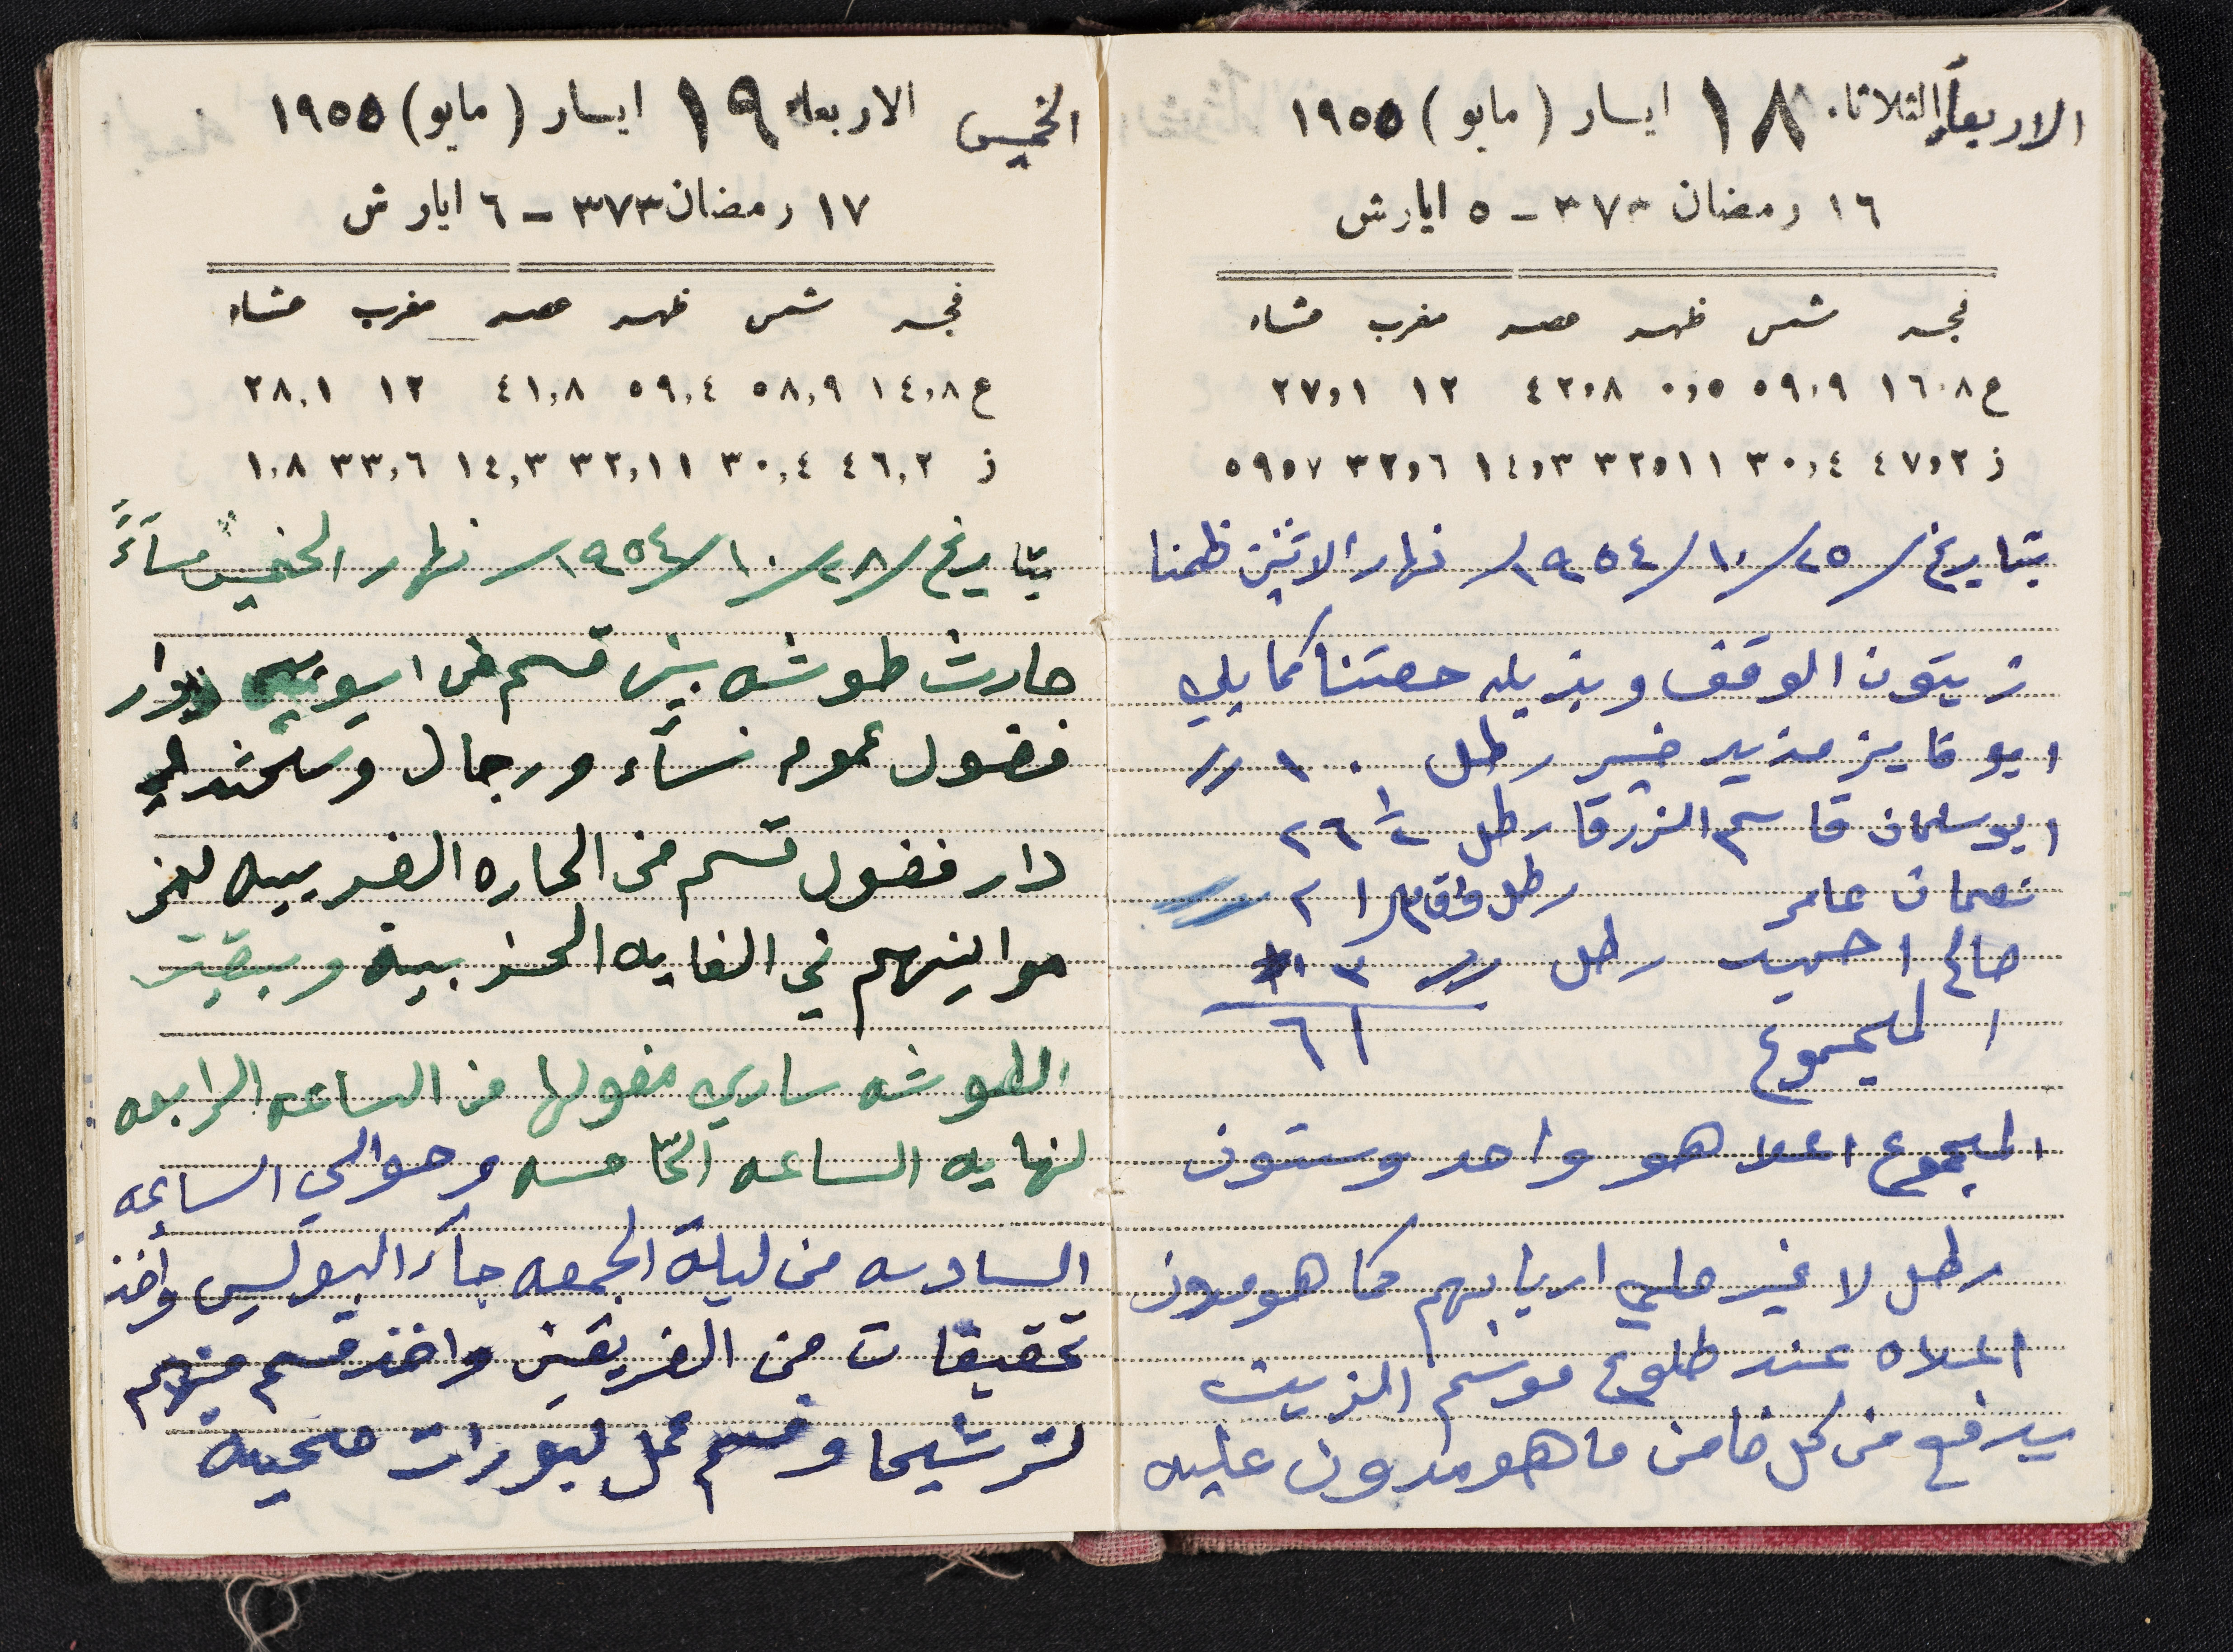 الاربعاً الثلاثاء ١٨ ايار (مايو) ١٩٥٥
١٦ رمضان ٣٧٣ - ٥ ايار ش
فجر شمس ظهر عصر مغرب عشاء
ع ١٦،٨ ٥٩،٩ ٠،٥ ٤٢،٨ ١٢ ٢٧،١
ز ٤٧،٢ ٣٠،٤ ٣٢،١١ ١٤،٣ ٣٢،٦ ٥٩،٧
بتاريخ /٢٥/١٠/١٩٥٤/ نهار الاثنين ظمنا
زيتون الوقف وبذيله حصتنا كما يلي
ابو فايز مزيد خير رطل ١٠
ابو سلمان قاسم الزرقا رطل ٢٦
نعمان عامر رطل ٢١
صالح احميد رطل ٣
المجموع ٦١
المجموع اعلا هو واحد وستون
رطل لا غير على اربابهم كما هو مدون
اعلاه عند طلوع موسم الزيت
يدفع من كل ضامن ما هو مدون عليه
الخميس الاربعاء ١٩ ايار (مايو) ١٩٥٥
١٧ رمضان ٣٧٣ - ٦ ايار ش
فجر شمس ظهر عصر مغرب عشاء
ع ١٤،٨ ٥٨،٩ ٥٩،٤ ٤١،٨ ١٢ ٢٨،١
ز ٤٦،٢ ٣٠،٤ ٣٢،١١ ١٤،٣ ٣٣،٦ ١،٨
بتاريخ /٢٨/١٠/١٩٥٤/ نهار الخميس مسآءً
حادث طوشه بين قسم من ودار
فضول عموم نسآء ورجال
دار فضول قسم من الحاره الغربيه
موالينهم في الغايه الحزبية وبقيت
الطوشه ساري مفعولها من الساعه الرابعه
لنهايه الساعه الخامسه وحوالي الساعه
السادسه من ليلة الجمعه جآء البوليس وأخذ
تحقيقات من الفريقين واخذ قسم منهم
لترشيحا وقسم عمل لبورات صحية